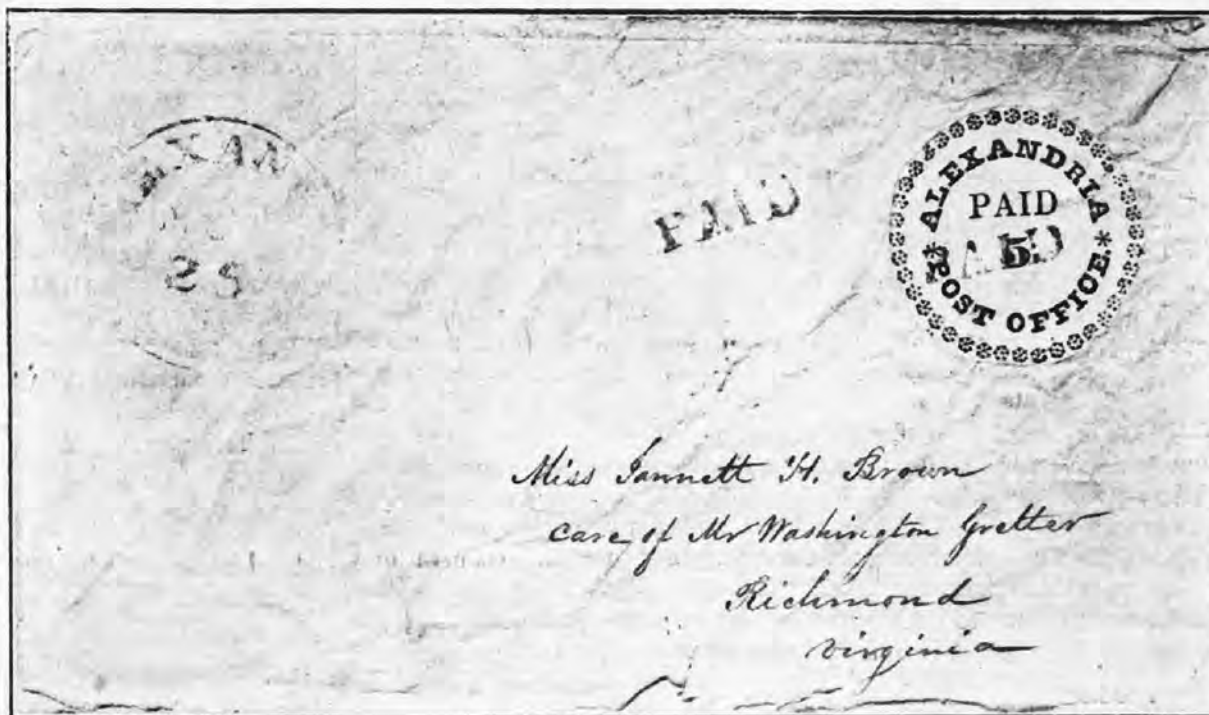 EXAN
25
PAID
ALEXANDRIA
PAID
5.
PAID
* POST OFFICE. *
Miss Jannett H. Brown
care of Mr Washington Gretter
Richmond
virginia